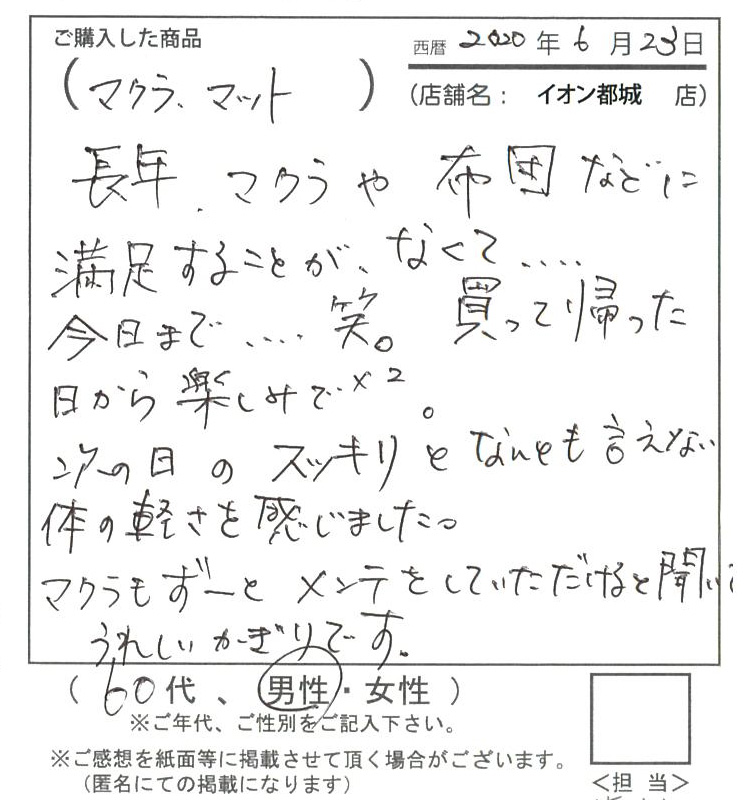 ご購入した商品
西暦 2020年 6月 23日
(マクラ、マット)
(店舗名： イオン都城 店)
長年、マクラや布団などに
満足することが、なくて....
今日まで....笑。買って帰った
日から楽しみで×2。
次の日のスッキリとなんとも言えない
体の軽さを感じました。
マクラもずーとメンテをしていただけると聞いて
うれしいかぎりです。
(60代、男性・女性)
※ご年代、ご性別をご記入下さい。
※ご感想を紙面等に掲載させて頂く場合がございます。
(匿名にての掲載になります)
＜担 当＞